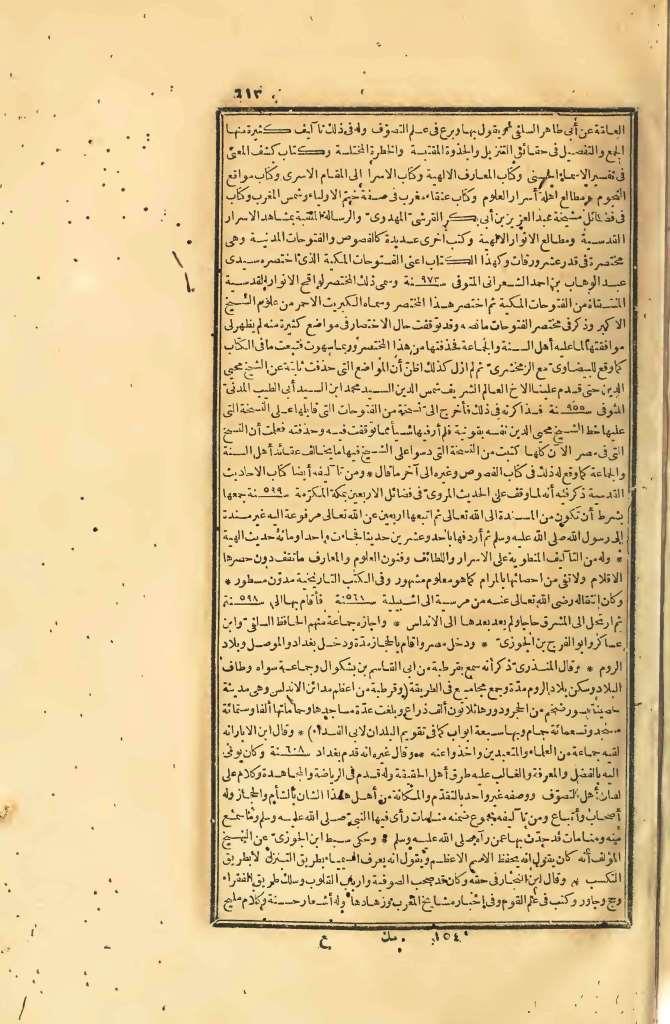 ٦١٣
العامة عن أبي طاهر السلفي هو يقول بها وبرع في علم التصوّف وله في ذلك تآليف كثيرة منها
الجمع والتفصيل في حقائق التنزيل والجذوة المقتبسة والخطرة المختلسة وكتاب كشف المعنى
في تفسير الاسماء الحسنى وكتاب المعارف الالهية وكتاب الاسرا إلى المقام الاسرى وكتاب مواقع
النجوم ومطالع أهلة أسرار العلوم وكتاب عنقاء مغرب في صفة ختم الاولياء وشمس المغرب وكتاب
في فضائل مشيخة عبد العزيز بن أبي بكر القرشي المهدوي والرسالة الملقبة بمشاهد الاسرار
القدسية ومطالع الانوار الالهية وكتب أخرى عديدة كالفصوص والفتوحات المدنية وهي
مختصرة في قدر عشر ورقات وكهذا الكتاب اعني الفتوحات المكية الذي اختصره سيدي
عبد الوهاب بن احمد الشعراني المتوفى سنة ٩٧٣ وسمى ذلك المختصر لواقح الانوار القدسية
المنتقاة من الفتوحات المكية ثم اختصر هذا المختصر وسماه الكبريت الاحمر من علوم الشيخ
الاكبر وذكر في مختصر الفتوحات ما نصه وقد توقفت حال الاختصار في مواضع كثيرة منه لم يظهر لي
موافقتها لما عليه أهل السنة والجماعة فحذفتها من هذا المختصر وربما سهوت فتبعت ما في الكتاب
كما وقع للبيضاوي مع الزمخشري ثم لم ازل كذلك اظن أن المواضع التي حذفت ثابتة عن الشيخ محيي
الدين حتى قدم علينا الاخ العالم الشريف شمس الدين السيد محمد ابن السيد أبي الطيب المدني
المتوفى سنة ٩٥٥ فذاكرته في ذلك فأخرج إليّ نسخة من الفتوحات التي قابلها على النسخة التي
عليها خط الشيخ محيي الدين نفسه بقونية فلم أر فيها شيأ مما توقفت فيه وحذفته فعلمت أن النسخ
التي في مصر الآن كلها كتبت من النسخة التي دسوا على الشيخ فيها ما يخالف عقائد أهل السنة
والجماعة كما وقع له ذلك في كتاب الفصوص وغيره الى آخر ما قال * ومن تآليفه أيضا كتاب الاحاديث
القدسية ذكر فيه أنه لما وقف على الحديث المروي في فضائل الاربعين بمكة المكرمة سنة ٥٩٩ جمعها
بشرط أن تكون من المسندة الى الله تعالى ثم اتبعها اربعين عن الله تعالى مرفوعة اليه غير مسندة
إلى رسول الله صلى الله عليه وسلم ثم أردفها بأحد وعشرين حديثا فجاءت واحدا ومائة حديث الهية
* وله من التآليف المنطوية على الاسرار واللطائف وفنون العلوم والمعارف ما تقف دون حصرها
الاقلام ولا تفي من احصائها بالمرام كما هو معلوم مشهور وفي الكتب التاريخية مدوّن مسطور *
وكان انتقاله رضي الله تعالى عنه من مرسية الى اشبيلية سنة ٥٦٨ فأقام بها الى سنة ٥٩٨
ثم ارتحل الى المشرق حاجا ولم يعد بعدها الى الاندلس * واجازه جماعة منهم الحافظ السلفي وابن
عساكر وابو الفرج بن الجوزي * ودخل مصر وأقام بالحجاز مدّة ودخل بغداد والموصل وبلاد
الروم * وقال المنذري ذكر أنه سمع بقرطبة من ابي القاسم بن بشكوال وجماعة سواه وطاف
البلاد وسكن بلاد الروم مدّة وجمع مجاميع في الطريقة (وقرطبة من اعظم مدائن الاندلس وهي مدينة
حصينة بسور ضخم من الحجر ودورها ثلاثون ألف ذراع وبلغت عدّة مساجدها وحماماتها ألفا وستمائة
مسجد وتسعمائة حمام وبها سبعة ابواب كما في تقويم البلدان لابي الفداء) * وقال ابن الابار انه
لقيه جماعة من العلماء والمتعبدين واخذوا عنه * وقال غيره انه قدم بغداد سنة ٦٠٨ وكان يومى
اليه بالفضل والمعرفة والغالب عليه طرق أهل الحقيقة وله قدم في الرياضة والمجاهدة وكلام على
لسان أهل التصوّف ووصفه غير واحد بالتقدّم والمكانة من أهل هذا الشان بالشأم والحجاز وله
أصحاب وأتباع ومن تآليفه مجموع ضمنه منامات رأى فيها النبي صلى الله عليه وسلم وما سمع
منه ومنامات قد حدّث بها عن رآه صلى الله عليه وسلم * وحكى سبط ابن الجوزي عن الشيخ
المؤلف أنه كان يقول انه يحفظ الاسم الاعظم ويقول انه يعرف السيمياء بطريق التنزل لا بطريق
التكسب * وقال ابن النجار في حقه وكان قد صحب الصوفية وارباب القلوب وسلك طريق الفقراء
وحج وجاور وكتب في علم القوم وفي اخبار مشايخ المغرب وزهادها وله أشعار حسنة وكلام مليح
١٥٤ مك ع